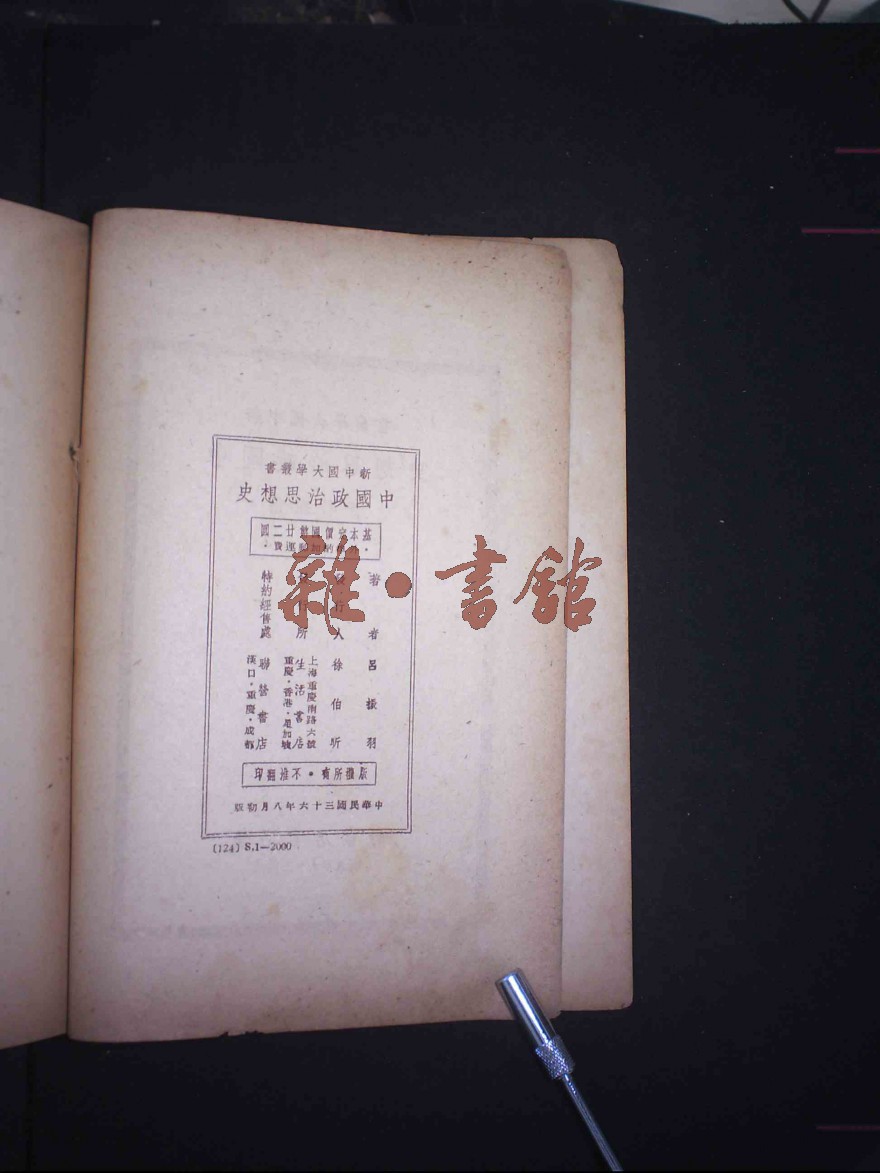 新中國大學叢書
中國政治思想史
基本定價國幣廿二圓
著者 呂振羽
發行人 徐伯昕
發行所 生活書店
上海重慶南路六號
重慶・香港・星加坡
特約經售處 聯營書店
漢口・重慶・成都
版權所有・不准翻印
中華民國三十六年八月初版
〔124〕S.1—2000
雜・書館